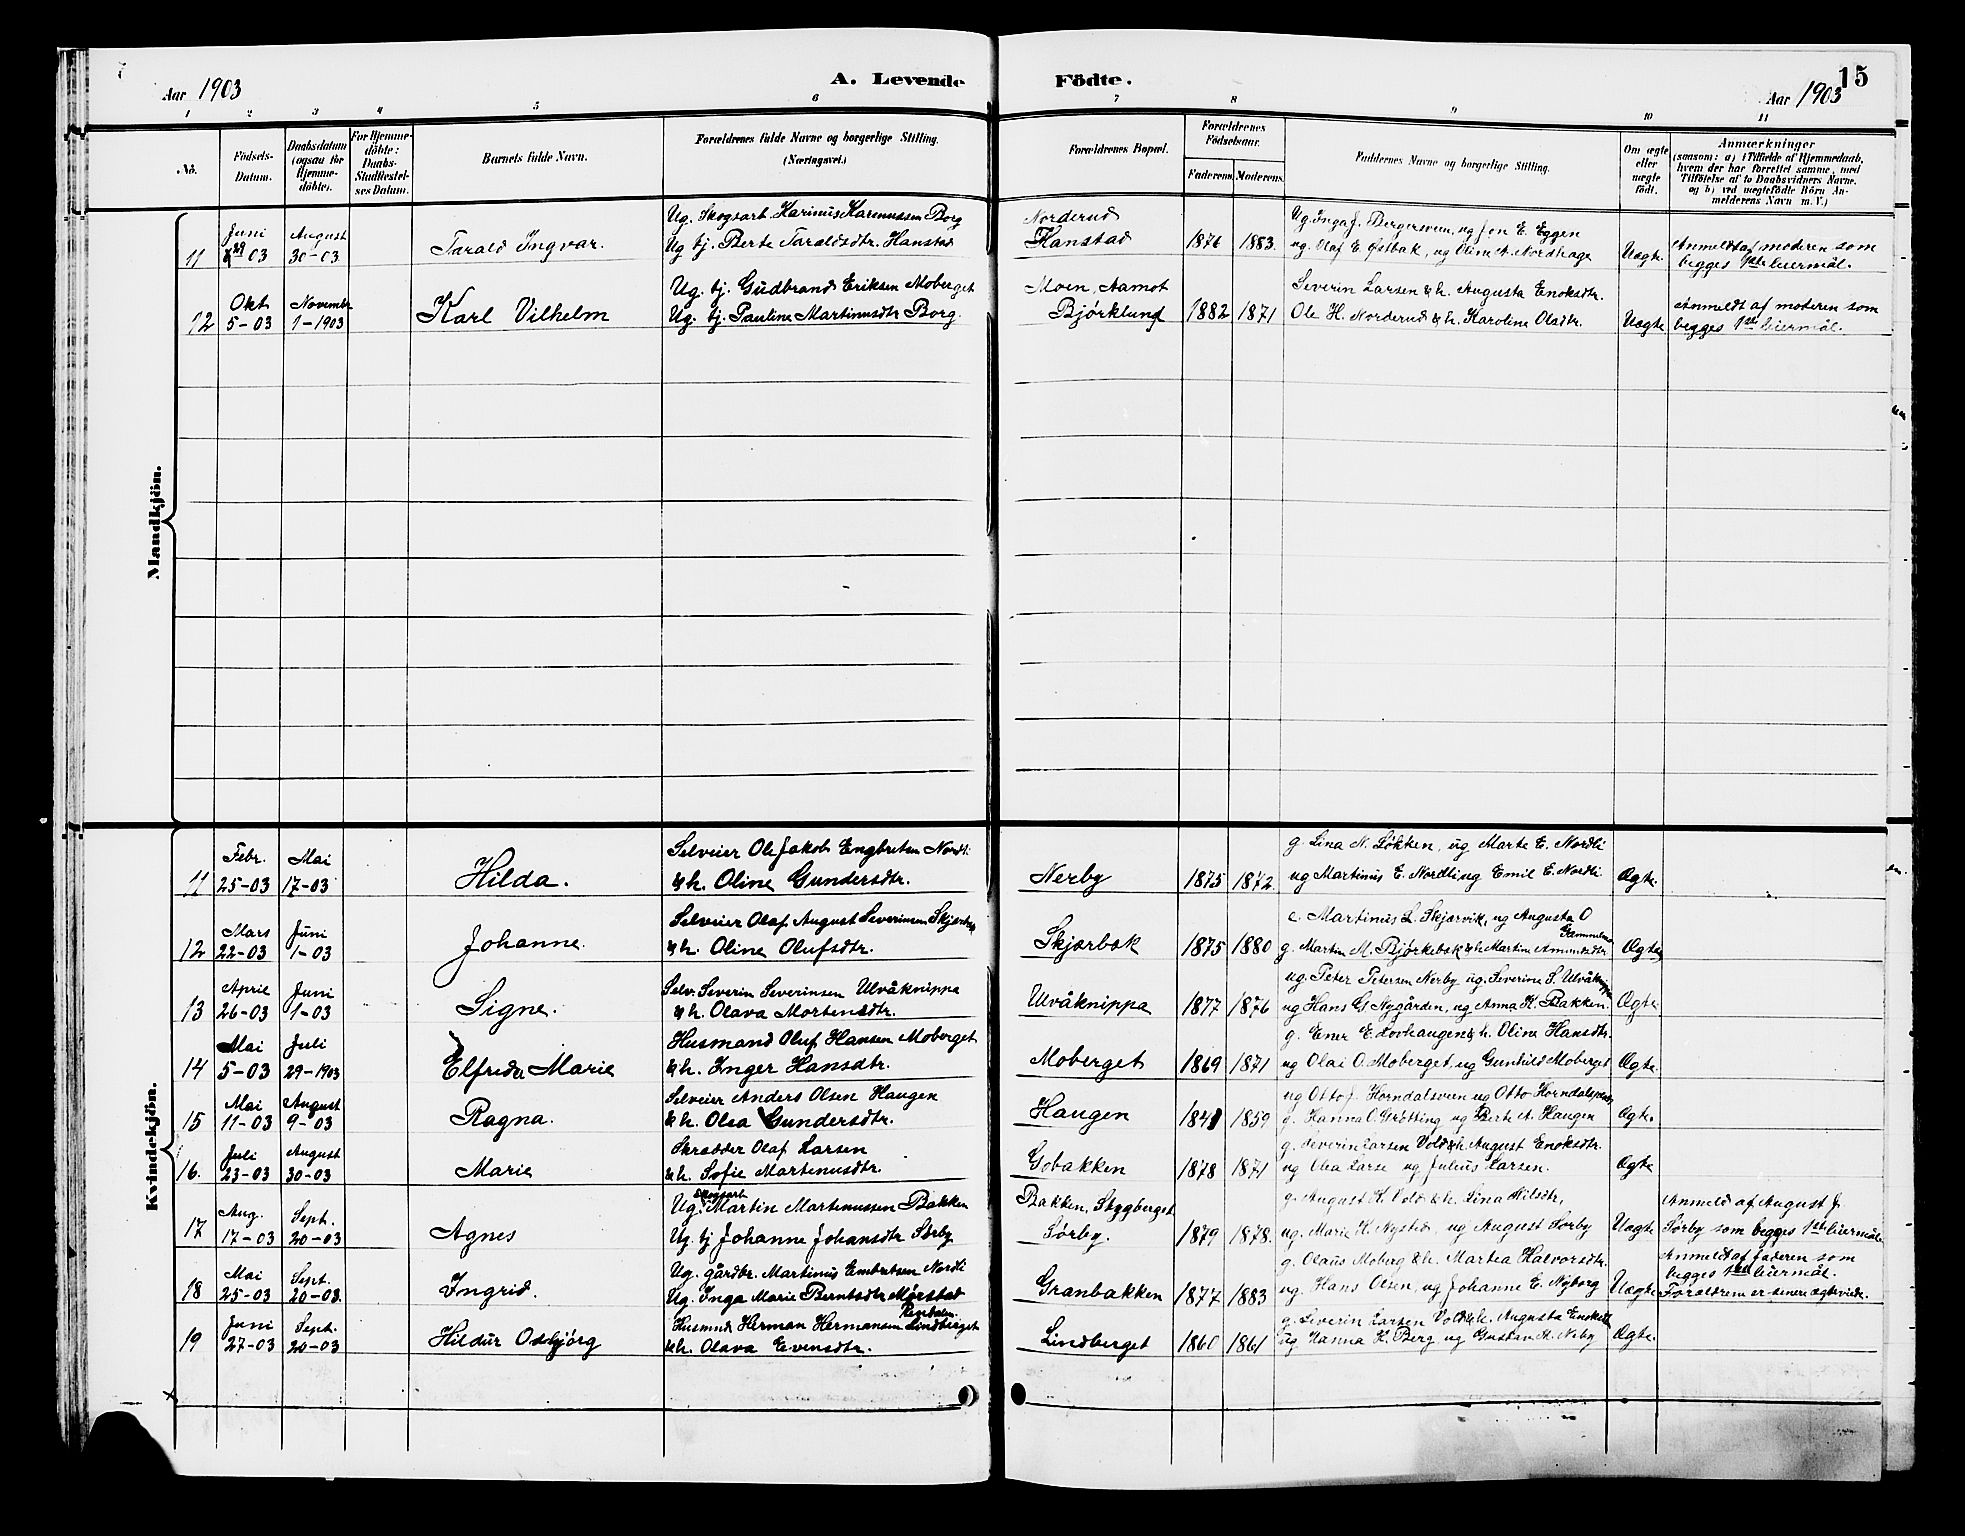 Aar 1903
A. Levende
Födte.
15
Aar 1903
1 2 3 4 5 6 7 8 9 10 11
No.
Födsels-
Datum.
Daabsdatum
(ogsaa for
Hjemme-
döbte).
For Hjemme-
döbte:
Daabs-
Stadfæstel-
ses Datum.
Barnets fulde Navn.
Forældrenes fulde Navne og borgerlige Stilling.
(Næringsvei.)
Forældrenes Bopæl.
Forældrenes
Födselsaar.
Faderens. Moderens.
Faddernes Navne og borgerlige Stilling.
Om ægte
eller
uægte
födt.
Anmærkninger
(saasom: a) i Tilfælde af Hjemmedaab,
hvem der har forrettet samme, med
Tilföielse af to Daabsvidners Navne,
og b) ved uægtefödte Börn An-
melderens Navn m. V.)
Mandkjön.
Juni August Ug. Skogsarb. Karinus Karenussen Borg Norderud Ug. Inga J. Bergersveen, ug Jon E. Eggen
11 28 03 30-03 Tarald Ingvar. Ug tj. Berte Taraldsdtr. Hanstad Hanstad 1876 1883. ug. Olaf E. Østbak, ug Oline A. Nordhage Uægte. Anmeldt af moderen som
begges 1ste leiermål.
Okt Novembr Ug. tj. Gudbrand Eriksen Moberget Moen, Aamot Severin Larsen & h. Augusta Enoksdtr.
12 5-03 1-1903 Karl Vilhelm Ug. tj. Pauline Martinusdtr Borg. Bjørklund 1882 1871 Ole H. Norderud & h. Karoline Olsdtr. Uægte Anmeldt af moderen som
begges 1ste leiermål.
Kvindekjön.
Febr. Mai Selveier Ole Jakob Engbretsen Nordli g. Lina N. Løkken, ug Marte E. Nordli
11 25-03 17-03 Hilda. & h. Oline Gundersdtr. Nerby 1875 1872. ug Martinus E. Nordli ug Emil E. Nordli Ægte.
Mars Juni Selveier Olaf August Severinsen Martinus L. Skjærvik, ug Augusta O
Gammelmo
12 22-03 1-03 Johanne. & h. Oline Olufsdtr. Skjærbæk 1875 1880 g. Martin M. Bjørkebæk & h. Martine Amundsdtr Ægte
April Juni Selv. Severin Severinsen Ulvåknippa ug. Peter Petersen Nerby ug. Severine S. Ulvåknippa
13 26-03 1-03 Signe. & h. Olava Mortensdtr. Ulvåknippa 1877 1876 ug Hans G. Nygården, ug Anna K. Bakken. Ægte
Mai Juli Husmand Oluf Hansen Moberget g. Ener E. Lovhaugen & h. Oline Hansdtr.
14 5-03 29-1903 Elfreda Marie & h. Inger Hansdtr. Moberget 1869 1871 ug Olai O. Moberget, ug Gunhild Moberget Ægte.
Mai August Selveier Anders Olsen Haugen ug Otto J. Horndalsveen ug Otto
15 11-03 9-03 Ragna. & h. Olea Gundersdtr. Haugen 1859 g. Hanna O. Grøtting ug Berte A. Haugen Ægte.
Juli August Skrædder Olaf Larsen g. Severin Larsen Vold & h. August Enoksdtr.
16. 23-03 30-03 Marie & h. Sofie Martenusdtr. Gobakken 1878 1871 ug Olea Larse ug Julius Larsen. Ægte
Aug. Sept. Ug. Skogsarb Martin Martenussen Bakken Bakken, Styggberget g. August K. Vold & h. Lina Nilsdtr, Anmeld af August J.
17 17-03 20-03 Agnes Ug. tj Johanne Johansdtr Sørby Sørby. 1879 1878. ug. Marie H. Nysted, ug August Sørby Uægte Sørby som begges 1ste leiermål.
Mai Sept. Ug. gårdbr. Martinus Embretsen Nordli g. Olaus Moberg & h. Martea Halvorsdtr. Anmeldt af faderen som
begges 1ste leiermål.
18 25-03 20-03. Ingrid. Ug. Inga Marie Berntsdtr Mørstad Granbakken 1877 1883 ug. Hans Olsen, ug Johanne E. Nyborg Uægte Forældrene er senere ægteviede.
Juni Sept. Husmnd Herman Hermansen Lindberget g. Severin Larsen Vold & h. Augusta Enoksdtr
19 27-03 20-03 Hildur Osbjørg & h. Olava Evensdtr. Lindberget 1860 1861 ug. Hanna K. Berg ug Gustav M. Neby Ægte.